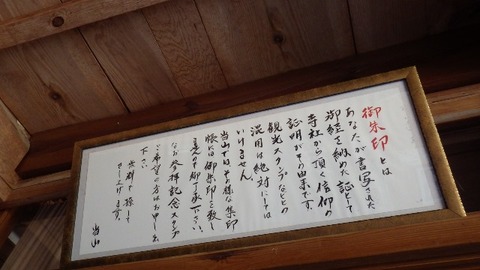 御朱印とは
あなたが書写された
御経を納めた証として
寺社から頂く信仰の
証明がその由来です
観光スタンプなどとの
混用は絶対にしては
いけません
当山ではその様な集印
帳には御朱印を致し
ませんので御了承下さい
なお参拝記念スタンプ
ご希望の方はお申し出
下さい
無料で捺して
さし上げます。
当山